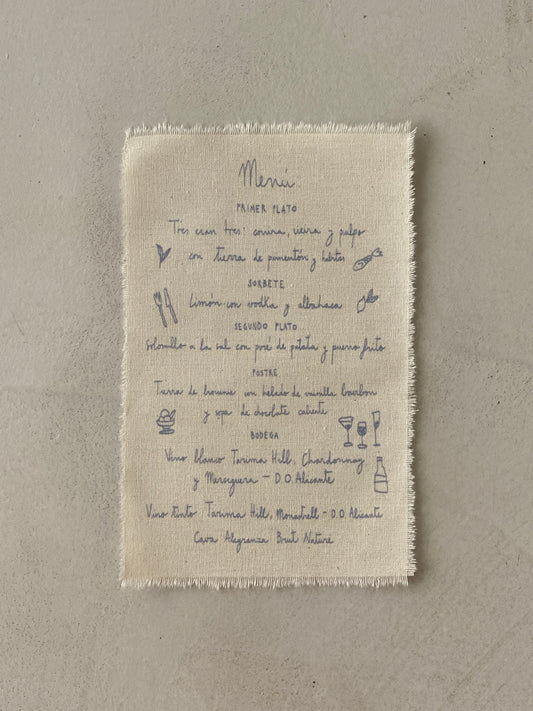 Menú
PRIMER PLATO
Tres eran tres: corvina, vieira y pulpo
con tierra de pimentón y hierbas
SORBETE
Limón con vodka y albahaca
SEGUNDO PLATO
Solomillo a la sal con puré de patata y puerro frito
POSTRE
Tierra de brownie con helado de vainilla bourbon
y sopa de chocolate caliente
BODEGA
Vino blanco Tarima Hill, Chardonnay
y Merseguera - D.O. Alicante
Vino tinto Tarima Hill, Monastrell - D.O. Alicante
Cava Alegranza Brut Nature